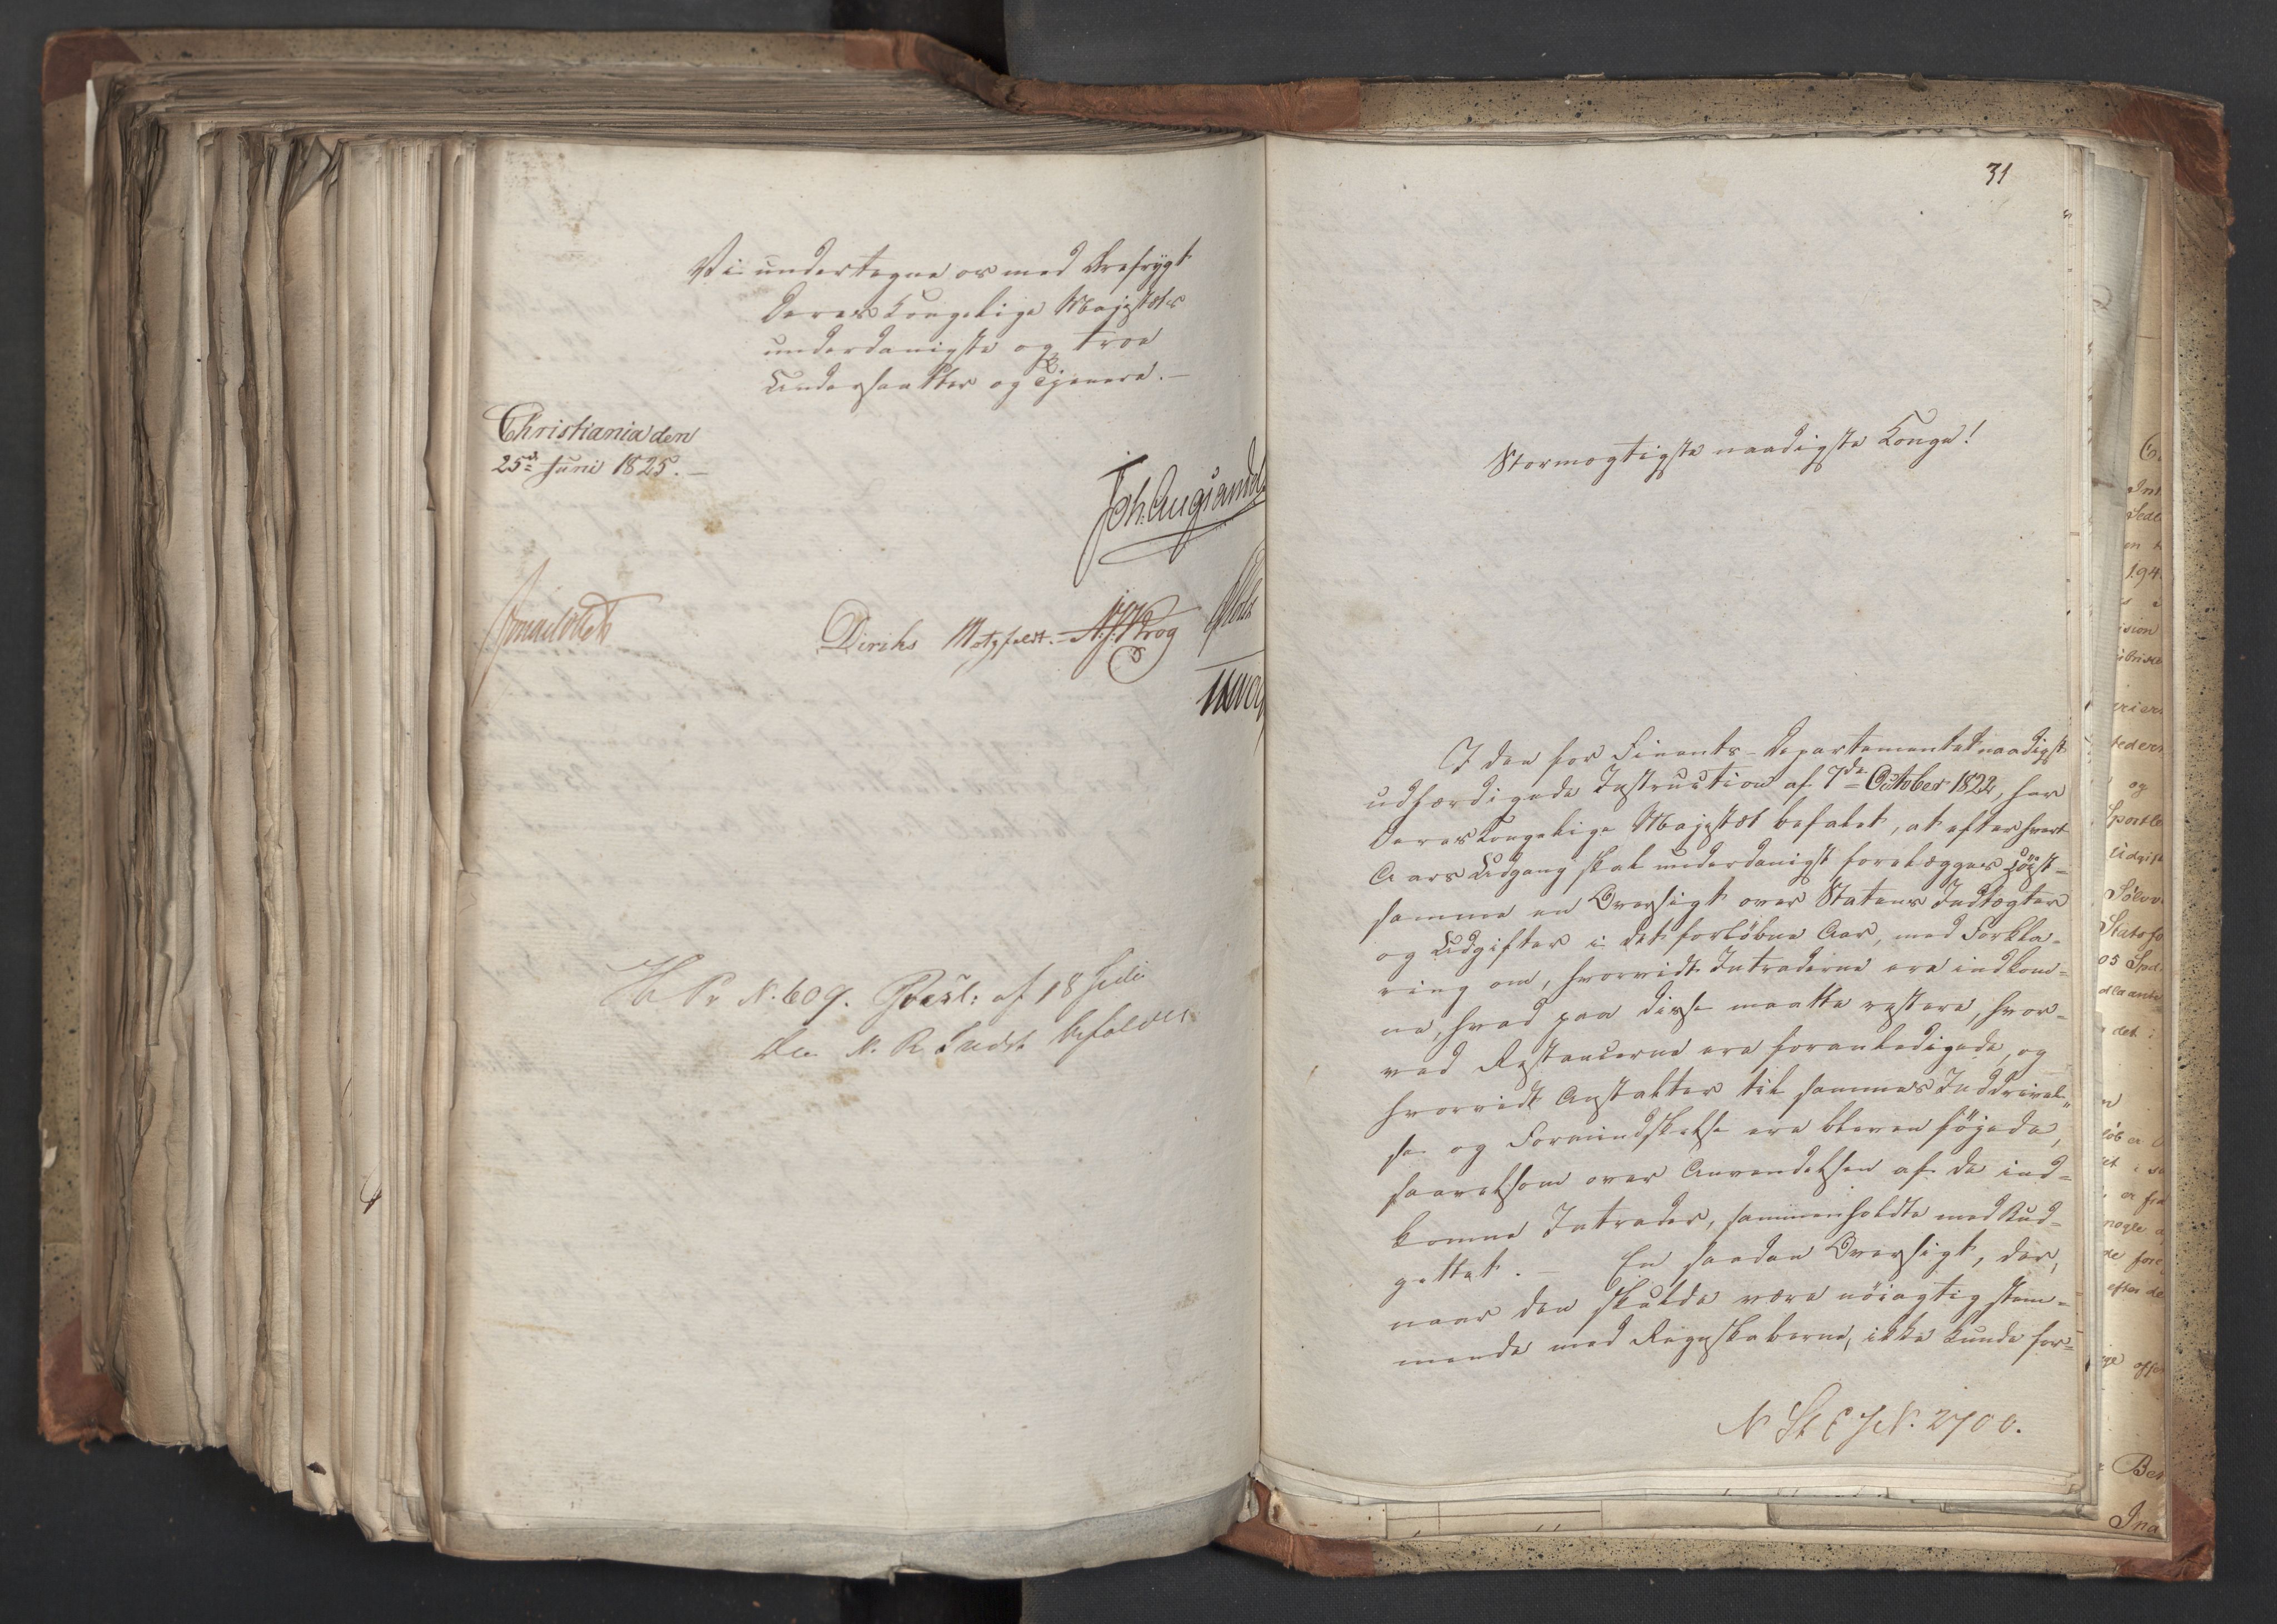 Vi undertegne os med Ærefrygt
Deres Kongelige Majestæts
underdanigste og troe
Undersaatter og Tjenere. —
Christiania den
25de Juni 1825. —
Diriks Motzfeldt. N. J. Krog
N. 609. Resl: af 18 Juli
befalet
31
Stormægtigste naadigste Konge!
I den for Finants-Departementet naadigst
udfærdigede Instruction af 7de October 1822, har
Deres Kongelige Majestæt befalet, at efter hvert
Aars Udgang skal underdanigst forelægges Høist-
samme en Oversigt over Statens Indtægter
og Udgifter i det forløbne Aar, med Forkla-
ring om, hvorvidt Intraderne ere indkom-
ne, hvad paa disse maatte restere, hvor-
ved Restancerne ere foranledigede, og
hvorvidt Anstalter til sammes Inddrivel-
se og Formindskelse ere blevne føjede,
saavelsom over Anvendelsen af de ind-
komne Intrader, sammenholdte med Bud-
gettet. — En saadan Oversigt, der,
naar den skulde være nöiagtig stem-
mende med Regnskaberne, ikke kunde for-
N. 2700.